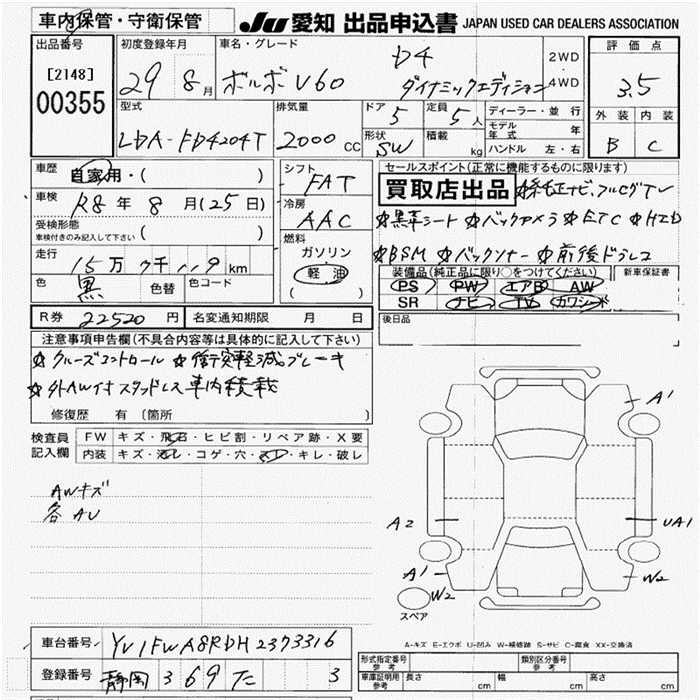 車内保管・守衛保管
JU 愛知 出品申込書 JAPAN USED CAR DEALERS ASSOCIATION
出品番号
[2148]
00355
初度登録年月
29 8月
車名・グレード
ボルボV60
D4
ダイナミックエディション
2WD
4WD
評価点
3.5
外装 内装
B C
型式
LDA-FD4204T
排気量
2000 CC
ドア
5
定員
5人
形状
SW
積載
kg
ディーラー・並行
モデル年式 年
ハンドル 左・右
車歴
自家用・( )
車検
R8年 8月(25日)
受検形態
車検付きのみ記入して下さい ( )
走行
15万 7千 119 km
色
黒
色替
色コード
シフト
FAT
冷房
AAC
燃料
ガソリン
軽油
( )
セールスポイント(正常に機能するものに限ります)
買取店出品 ☆純正ナビ、フルセグTV
☆黒革シート ☆バックカメラ ☆ETC ☆HID
☆BSM ☆バックソナー ☆前後ドラレコ
装備品(純正品に限り○をつけてください)
新車保証書
PS PW エアB AW
SR ナビ TV カワシート
R券 22520円
名変通知期限 月 日
後日品
注意事項申告欄(不具合内容等は具体的に記入して下さい)
☆クルーズコントロール ☆衝突軽減ブレーキ
☆外AW付スタッドレス車内積載
修復歴 有 〔箇所
検査員記入欄
FW キズ・飛石・ヒビ割・リペア跡・X要
内装 キズ・汚レ・コゲ・穴・スレ・キレ・破レ
AWキズ
各AU
A1
A2
UA1
A1
W2
W2
スペア
A-キズ E-エクボ U-凹み W-補修跡 S-サビ C-腐食 XX-交換済
車台番号 YV1FWA8RDH2373316
登録番号 静岡 369 た 3
形式指定番号 参考
類別区分番号 参考
車庫証明用 参考
長さ cm
幅 cm
高さ cm